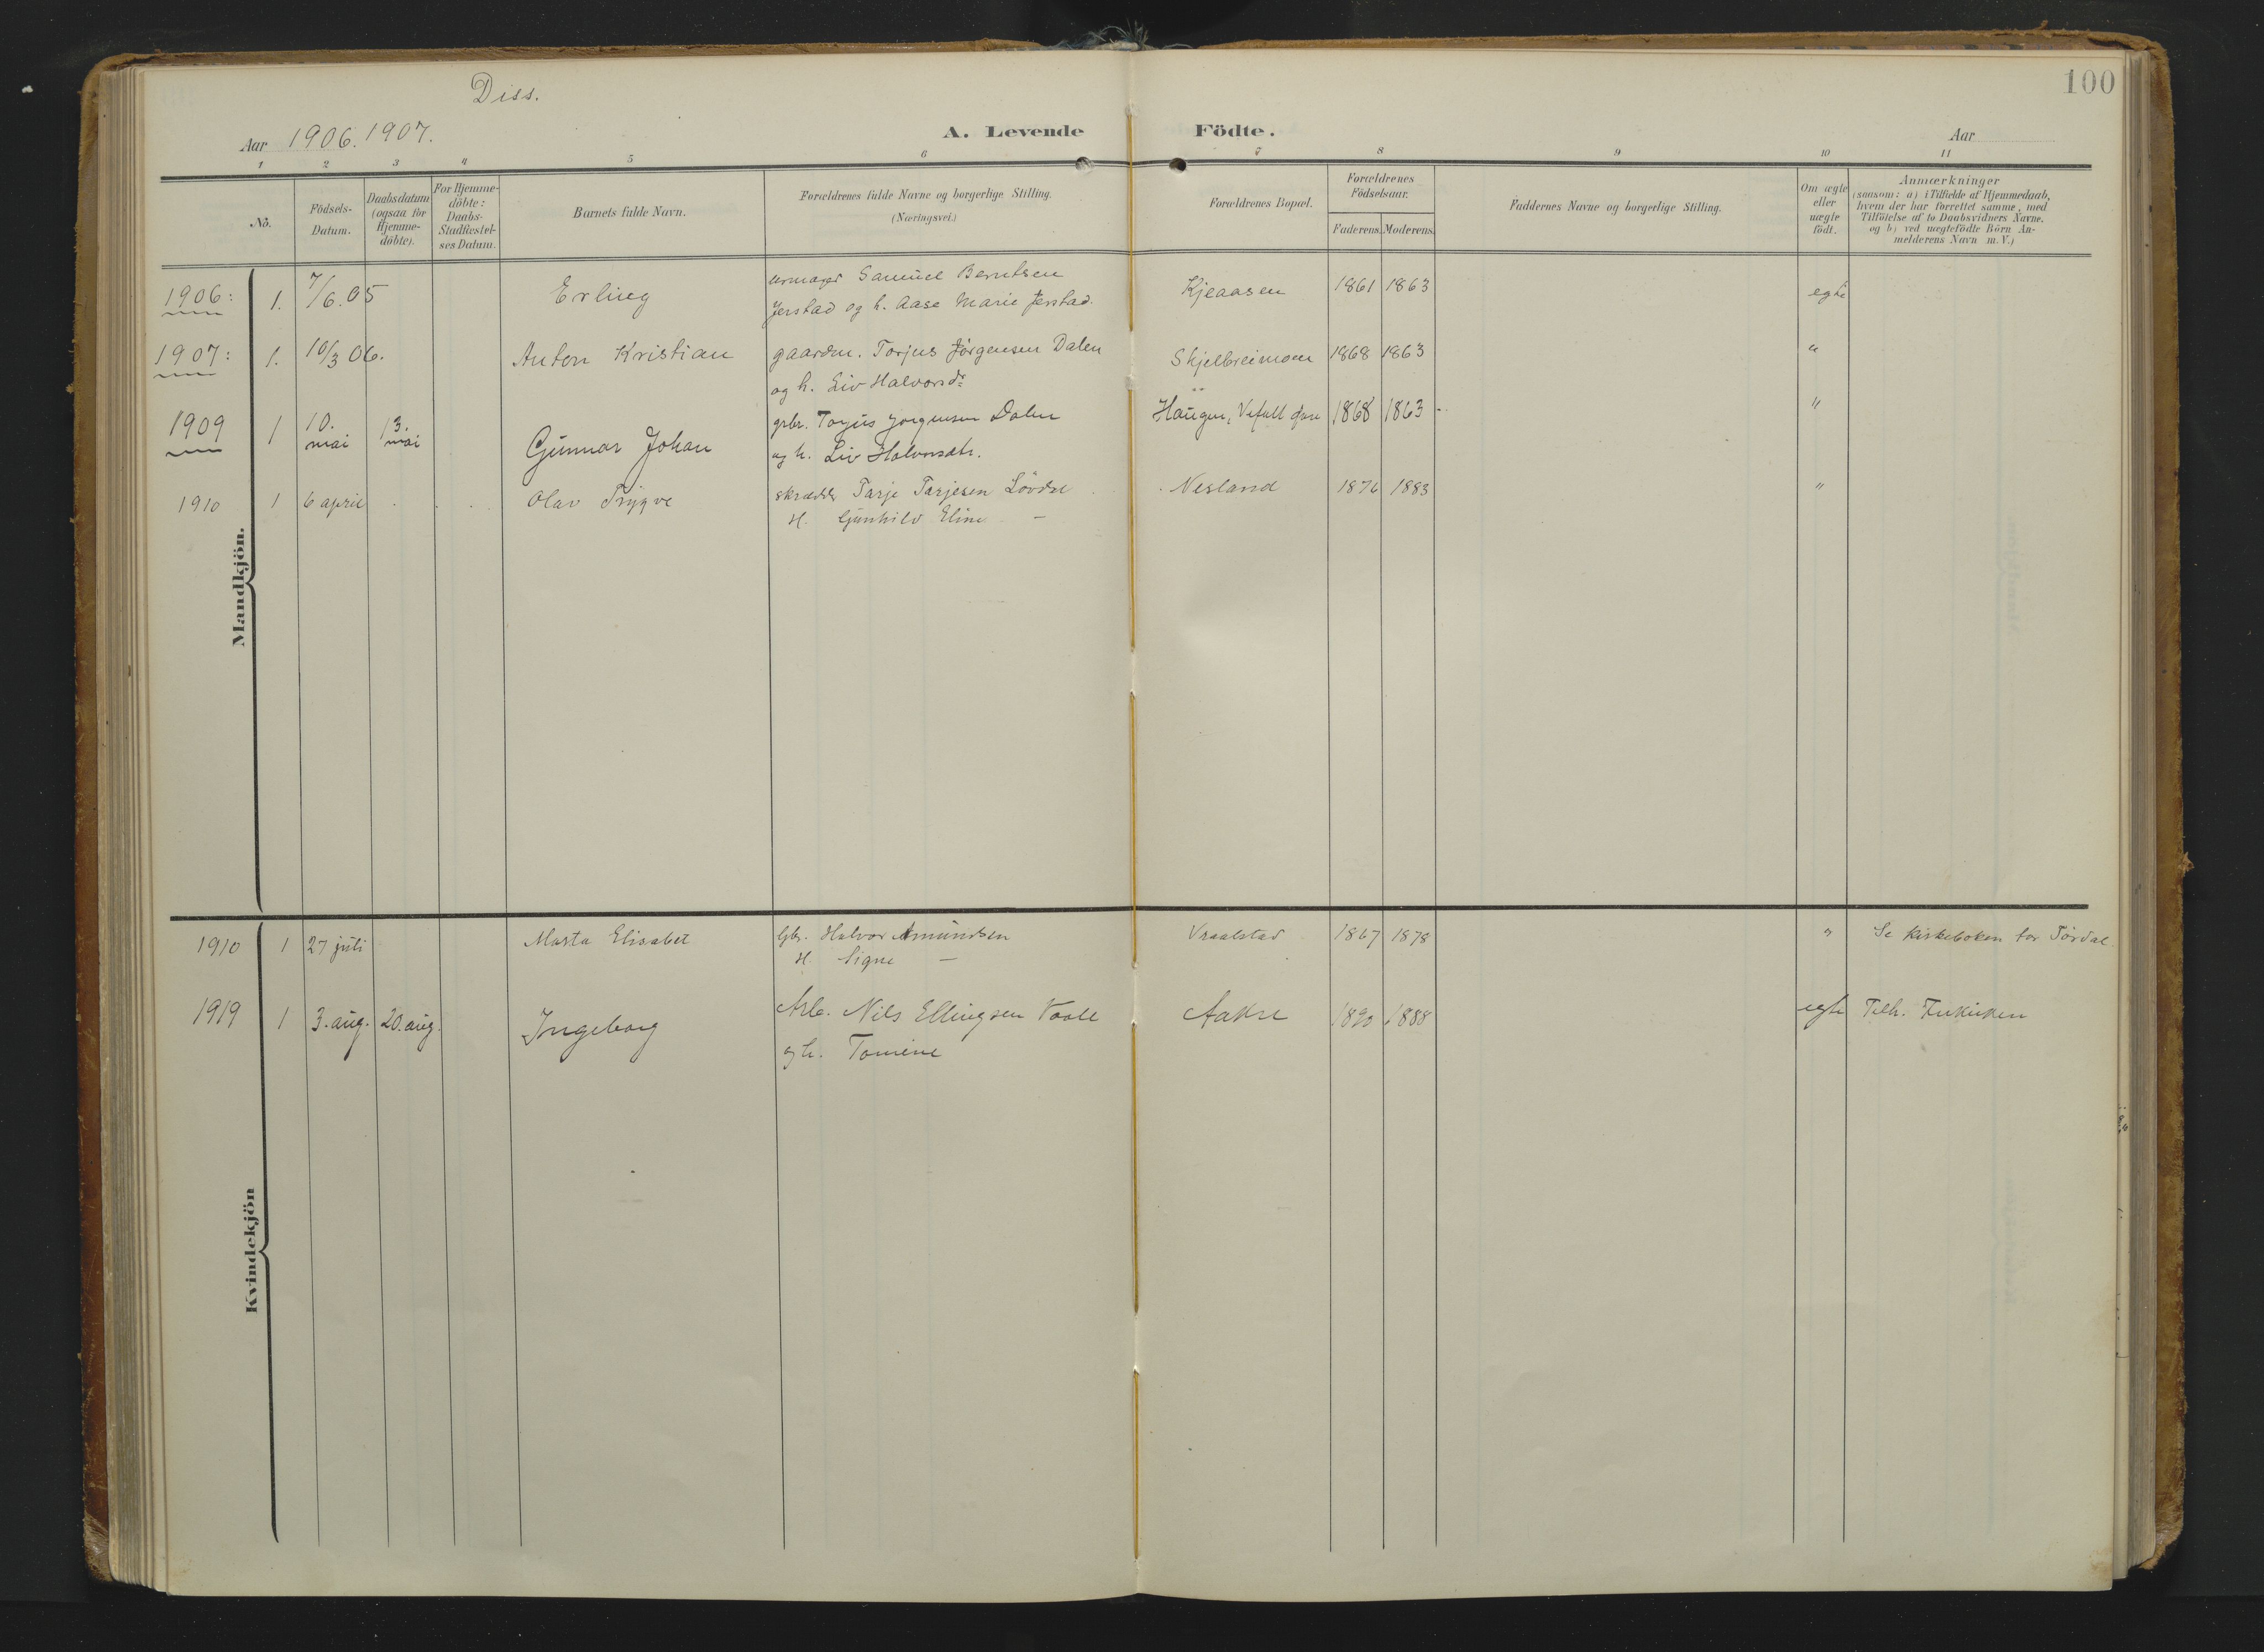 100
Diss.
Aar 1906. 1907.
A. Levende Födte.
Aar
1 2 3 4 5 6 7 8 9 10 11
No.
Födsels-
Datum.
Daabsdatum
(ogsaa for
Hjemme-
döbte).
For Hjemme-
döbte:
Daabs-
Stadfæstel-
ses Datum.
Barnets fulde Navn.
Forældrenes fulde Navne og borgerlige Stilling.
(Næringsvei.)
Forældrenes Bopæl.
Forældrenes
Födselsaar.
Faderens. Moderens.
Faddernes Navne og borgerlige Stilling.
Om ægte
eller
uægte
födt.
Anmærkninger
(saasom: a) i Tilfælde af Hjemmedaab,
hvem der har forrettet samme, med
Tilföielse af to Daabsvidners Navne.
og b) ved uægtefödte Börn An-
melderens Navn m. V.)
Mandkjön.
1906: 1. 7/6.05 Erling urmager Samuel Berntsen Kjeaasen 1861 1863 egte
Jerstad og h. Aase Marie Jerstad.
1907: 1. 10/3 06. Anton Kristian gaardm. Torjus Jörgensen Dalen Skjelbreimoen 1868 1863 "
og h. Liv Halvorsdr.
1909 1 10. mai 13. mai Gunnar Johan gbr. Torjus Jörgensen Dalen Haugen, 1868 1863 "
og h. Liv Halvorsdtr.
1910 1 6 april Olav Trygve skrædder Tarje Tarjesen Lövdal Nesland 1876 1883 "
H. Gunhild Eline —
Kvindekjön
1910 1 27 juli Marta Elisabet Gbr. Halvor Amundsen Vraalstad 1867 1878 " Se kirkeboken for Tördal
H. Signe —
1919 1 3. aug. 20. aug. Ingeborg Arb. Nils Ellingsen Vaale Aakre 1890 1888 egte Tilh. Frikirken
og h. Tomine